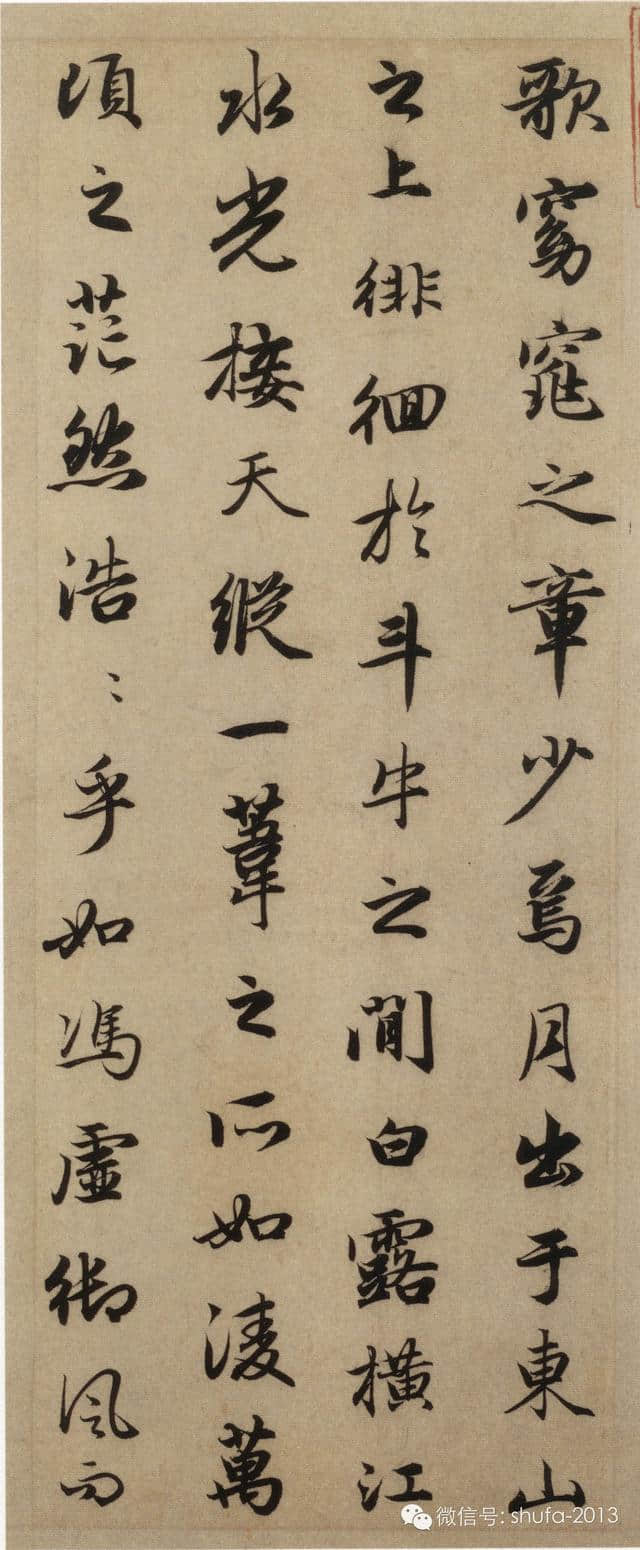 歌窈窕之章少焉月出于東山
之上徘徊於斗牛之間白露橫江
水光接天縱一葦之所如淩萬
頃之茫然浩〻乎如馮虛御風而
微信号: shufa-2013